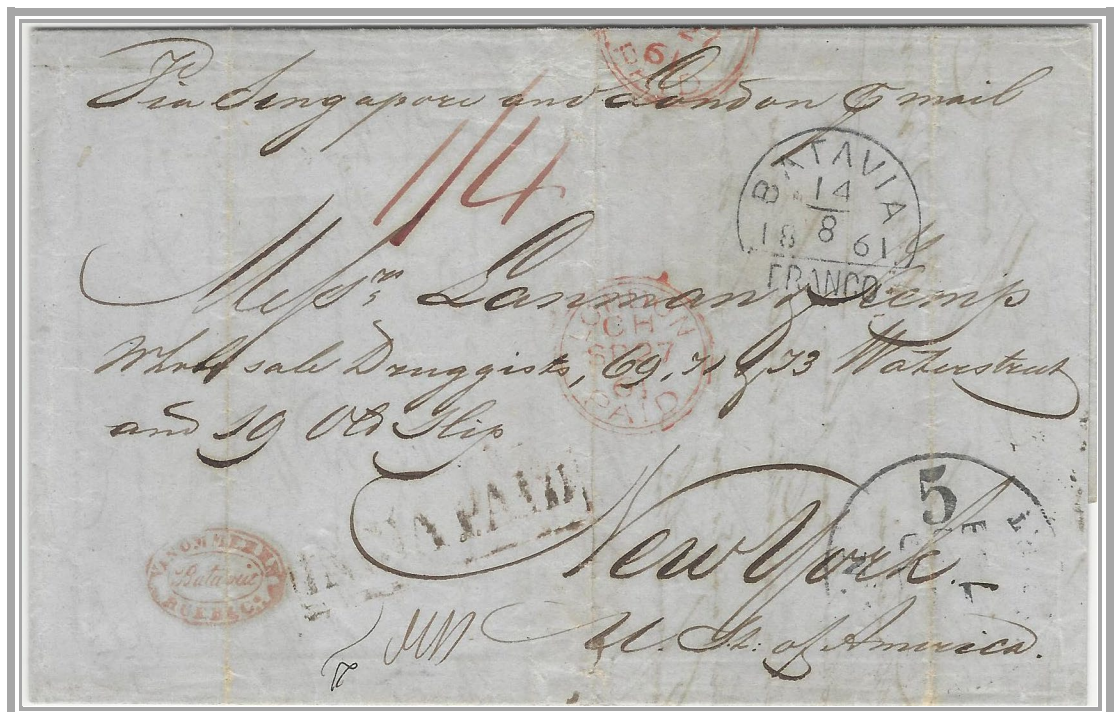 61
PAID
Via Singapore and London p mail
1/4
BATAVIA
14
8
18 61
FRANCO
Messrs Lanman & Kemp
LONDON
CH
SP 27
61
PAID
Wholesale Druggists, 69, 71 & 73 Waterstreet
and 19 Old Slip
INDIA PAID
New York
5
Batavia
U. St. of America.